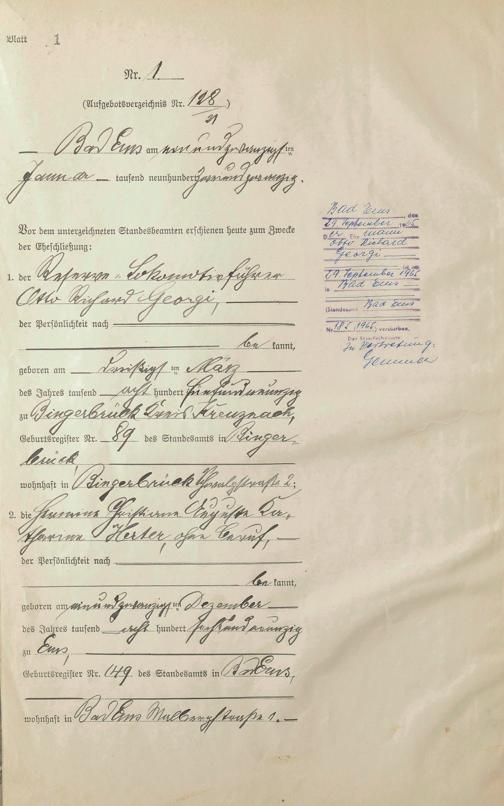 Blatt 1
Nr. 1
(Aufgebotsverzeichnis Nr. 128/21)
Bad Ems am neunundzwanzigsten
Januar tausend neunhundert zweiundzwanzig.
Vor dem unterzeichneten Standesbeamten erschienen heute zum Zwecke
der Eheschließung:
1. der Reserve-Lokomotivführer
Otto Richard Georgi,
der Persönlichkeit nach
be kannt,
geboren am dreißigsten März
des Jahres tausend acht hundert fünfundneunzig
zu Bingerbrück Kreis Kreuznach,
Geburtsregister Nr. 89 des Standesamts in Binger-
brück,
wohnhaft in Bingerbrück 2;
2. die Hermine Christiane Auguste Ka-
tharine Herter, ohne Beruf,
der Persönlichkeit nach
be kannt,
geboren am Dezember
des Jahres tausend acht hundert sechsundneunzig
zu Ems,
Geburtsregister Nr. 149 des Standesamts in Bad Ems,
wohnhaft in Bad Ems Malbergstraße 1.
Bad Ems, den
29. September 1965
Der Ehemann
Otto Richard
Georgi
29. September 1965
in Bad Ems
(Standesamt Bad Ems
Nr. 1965) verstorben.
Der Standesbeamte
In Vertretung: